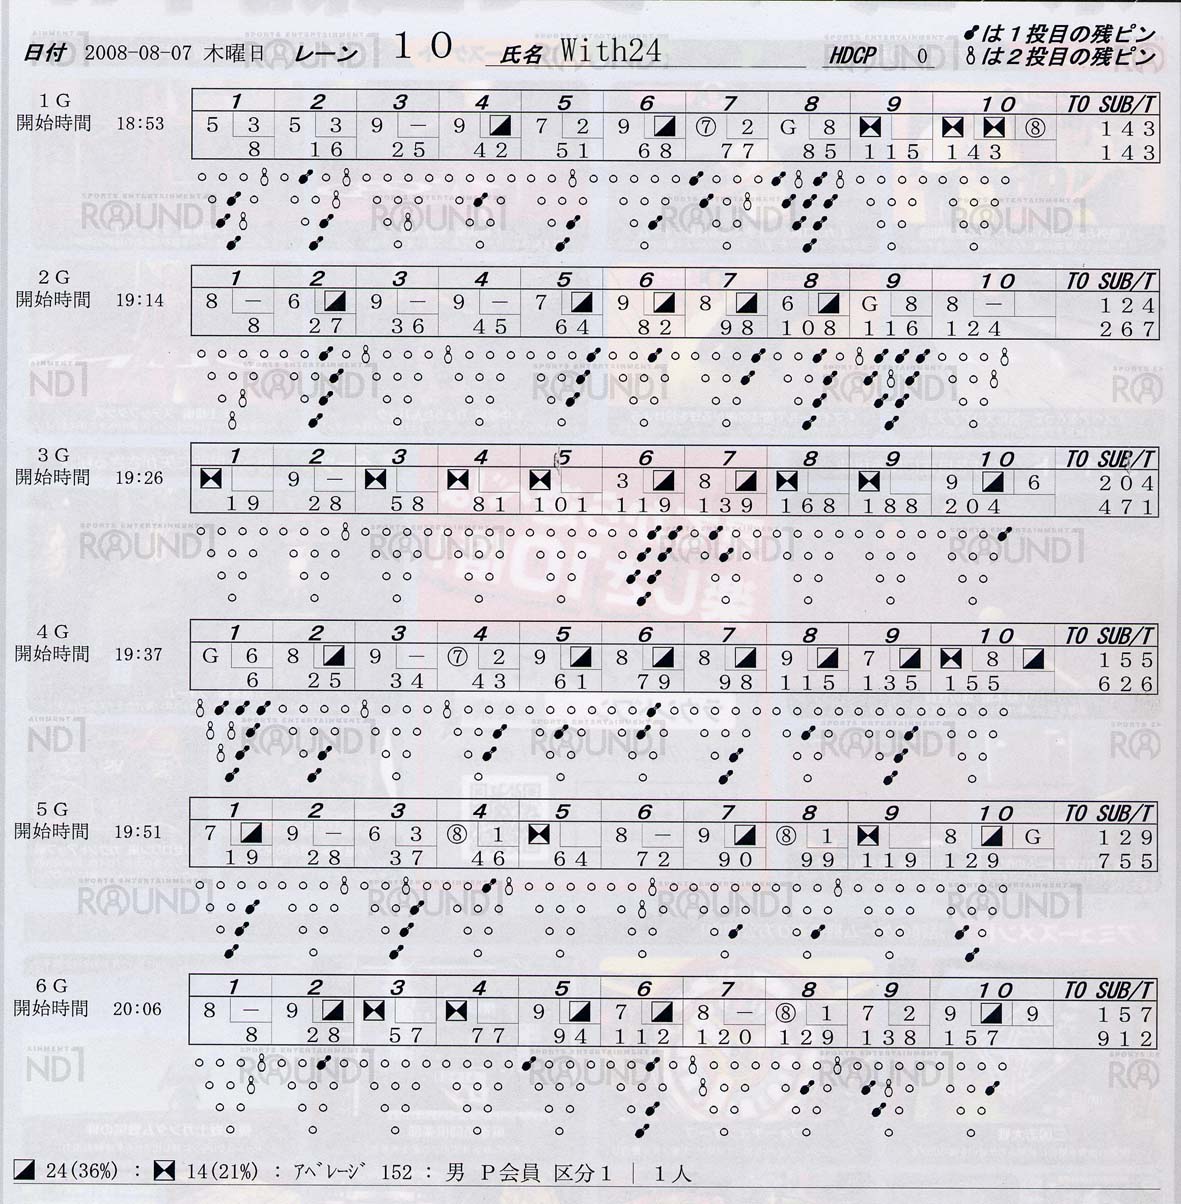 は1投目の残ピン
日付 2008-08-07 木曜日 レーン 10 氏名 With24 HDCP 0 は2投目の残ピン
1G 1 2 3 4 5 6 7 8 9 10 TO SUB/T
開始時間 18:53 5 3 5 3 9 － 9 ◪ 7 2 9 ◪ ⑦ 2 G 8 ⧓ ⧓ ⧓ ⑧ 143
8 16 25 42 51 68 77 85 115 143 143
2G 1 2 3 4 5 6 7 8 9 10 TO SUB/T
開始時間 19:14 8 － 6 ◪ 9 － 9 － 7 ◪ 9 ◪ 8 ◪ 6 ◪ G 8 8 － 124
8 27 36 45 64 82 98 108 116 124 267
3G 1 2 3 4 5 6 7 8 9 10 TO SUB/T
開始時間 19:26 ⧓ 9 － ⧓ ⧓ ⧓ 3 ◪ 8 ◪ ⧓ ⧓ 9 ◪ 6 204
19 28 58 81 101 119 139 168 188 204 471
4G 1 2 3 4 5 6 7 8 9 10 TO SUB/T
開始時間 19:37 G 6 8 ◪ 9 － ⑦ 2 9 ◪ 8 ◪ 8 ◪ 9 ◪ 7 ◪ ⧓ 8 ◪ 155
6 25 34 43 61 79 98 115 135 155 626
5G 1 2 3 4 5 6 7 8 9 10 TO SUB/T
開始時間 19:51 7 ◪ 9 － 6 3 ⑧ 1 ⧓ 8 － 9 ◪ ⑧ 1 ⧓ 8 ◪ G 129
19 28 37 46 64 72 90 99 119 129 755
6G 1 2 3 4 5 6 7 8 9 10 TO SUB/T
開始時間 20:06 8 － 9 ◪ ⧓ ⧓ 9 ◪ 7 ◪ 8 － ⑧ 1 7 2 9 ◪ 9 157
8 28 57 77 94 112 120 129 138 157 912
◪ 24(36%) : ⧓ 14(21%) : ｱﾍﾞﾚｰｼﾞ 152 : 男 P会員 区分1 | 1人